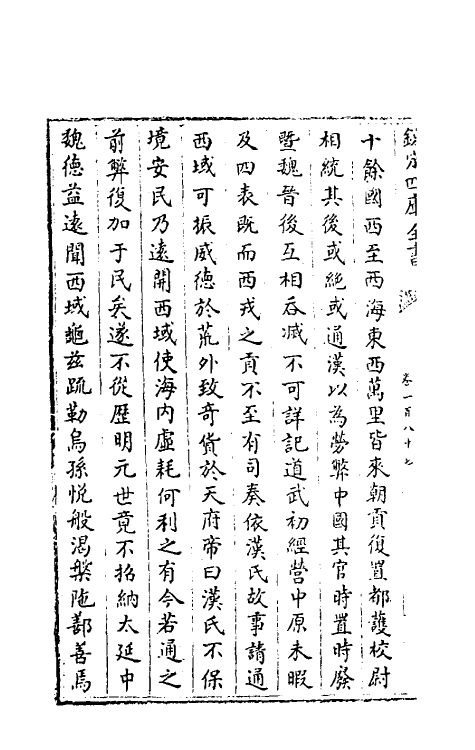 欽定四庫全書
卷一百八十七
十餘國西至西海東西萬里皆來朝貢復置都護校尉
相統其後或絶或通漢以為勞弊中國其官時置時廢
暨魏晉後互相吞滅不可詳記道武初經營中原未暇
及四表既而西戎之貢不至有司奏依漢氏故事請通
西域可振威德於荒外致奇貨於天府帝曰漢氏不保
境安民乃遠開西域使海内虛耗何利之有今若通之
前弊復加于民矣遂不從歴明元世竟不招納太延中
魏德益遠聞西域龜兹疏勒烏孫悦般渴槃陁鄯善焉